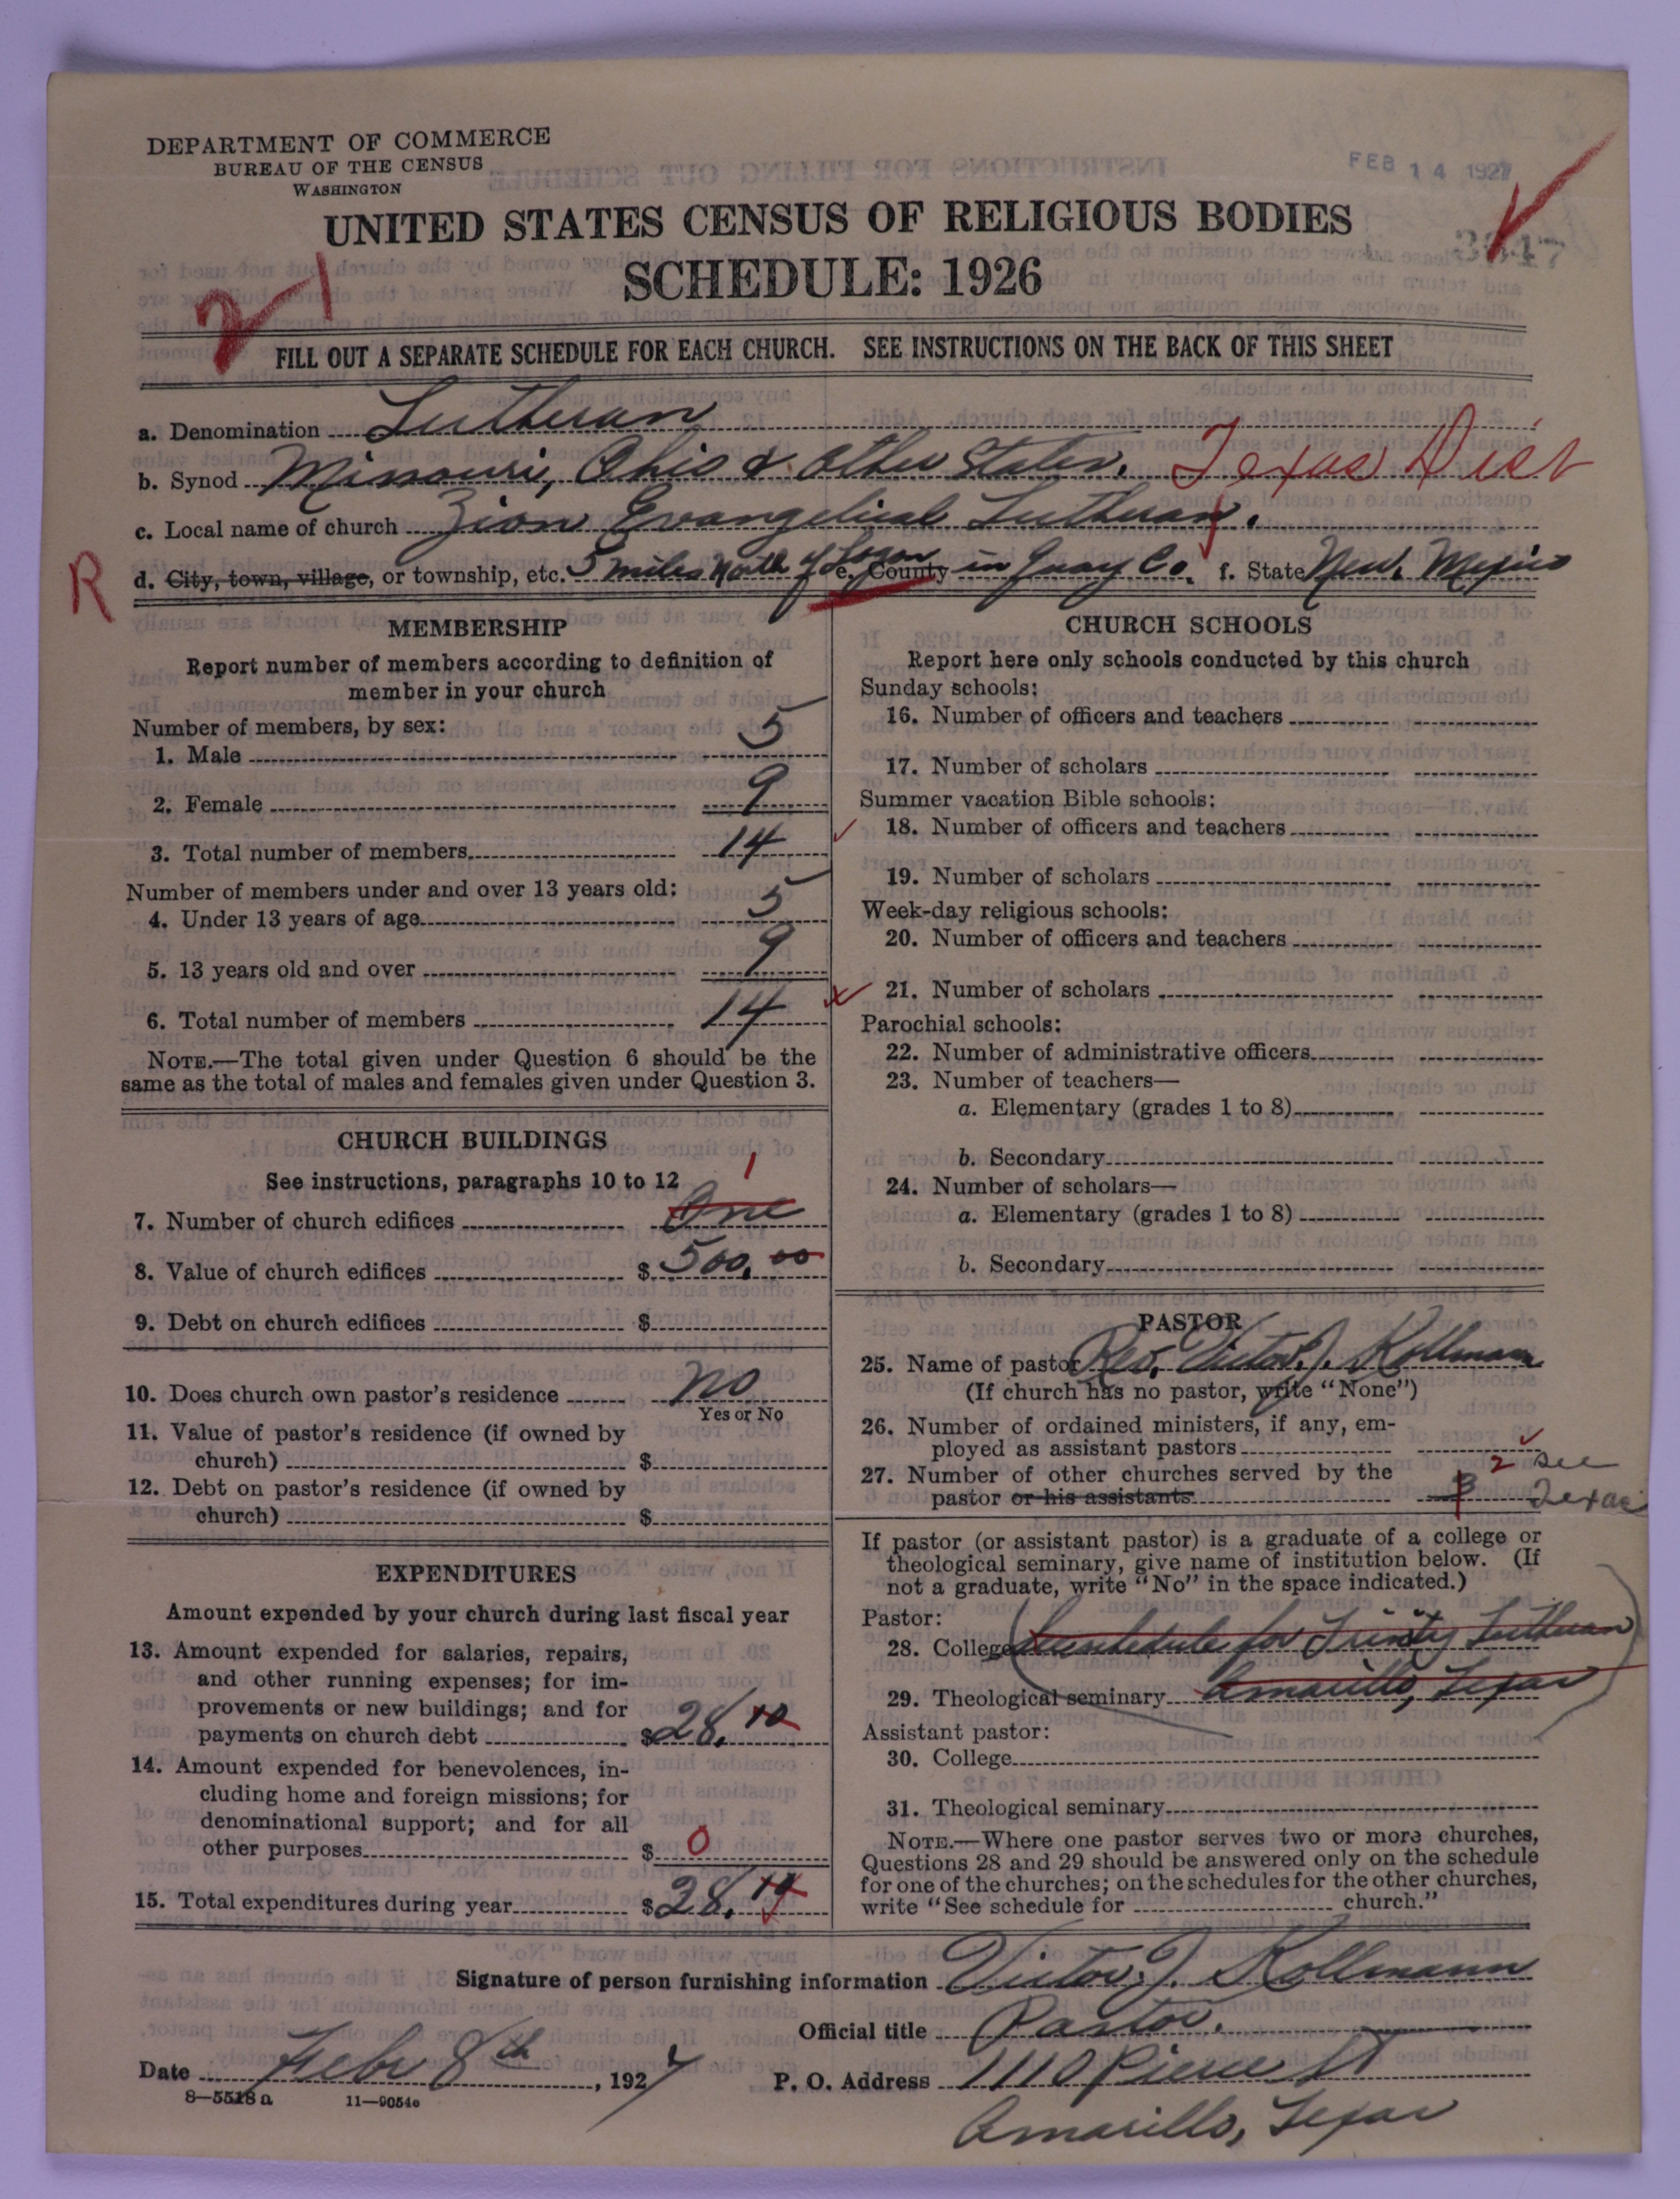 DEPARTMENT OF COMMERCE
BUREAU OF THE CENSUS
WASHINGTON
FEB 14 1927
UNITED STATES CENSUS OF RELIGIOUS BODIES
SCHEDULE: 1926
2-1
FILL OUT A SEPARATE SCHEDULE FOR EACH CHURCH. SEE INSTRUCTIONS ON THE BACK OF THIS SHEET
a. Denomination Lutheran
b. Synod Missouri, Ohio & Other States. Texas Dist
c. Local name of church Zion Evangelical Lutheran.
R d. City, town, village, or township, etc. 5 miles North of Logan e. County in Quay Co. f. State New Mexico
MEMBERSHIP
Report number of members according to definition of
member in your church
Number of members, by sex:
1. Male 5
2. Female 9
3. Total number of members 14
Number of members under and over 13 years old:
4. Under 13 years of age 5
5. 13 years old and over 9
6. Total number of members 14
NOTE.—The total given under Question 6 should be the
same as the total of males and females given under Question 3.
CHURCH BUILDINGS
See instructions, paragraphs 10 to 12
1
7. Number of church edifices One
8. Value of church edifices $ 500.00
9. Debt on church edifices $
10. Does church own pastor's residence No
Yes or No
11. Value of pastor's residence (if owned by
church) $
12. Debt on pastor's residence (if owned by
church) $
EXPENDITURES
Amount expended by your church during last fiscal year
13. Amount expended for salaries, repairs,
and other running expenses; for im-
provements or new buildings; and for
payments on church debt $ 28.10
14. Amount expended for benevolences, in-
cluding home and foreign missions; for
denominational support; and for all
other purposes $ 0
15. Total expenditures during year $ 28.10
CHURCH SCHOOLS
Report here only schools conducted by this church
Sunday schools:
16. Number of officers and teachers
17. Number of scholars
Summer vacation Bible schools:
18. Number of officers and teachers
19. Number of scholars
Week-day religious schools:
20. Number of officers and teachers
21. Number of scholars
Parochial schools:
22. Number of administrative officers
23. Number of teachers—
a. Elementary (grades 1 to 8)
b. Secondary
24. Number of scholars—
a. Elementary (grades 1 to 8)
b. Secondary
PASTOR
25. Name of pastor Rev. Victor J. Kollmann
(If church has no pastor, write "None")
26. Number of ordained ministers, if any, em-
ployed as assistant pastors
27. Number of other churches served by the 2 see
pastor or his assistants 3 Texas
If pastor (or assistant pastor) is a graduate of a college or
theological seminary, give name of institution below. (If
not a graduate, write "No" in the space indicated.)
Pastor:
28. College See schedule for Trinity Lutheran
29. Theological seminary Amarillo, Texas
Assistant pastor:
30. College
31. Theological seminary
NOTE.—Where one pastor serves two or more churches,
Questions 28 and 29 should be answered only on the schedule
for one of the churches; on the schedules for the other churches,
write "See schedule for church."
Signature of person furnishing information Victor J. Kollmann
Official title Pastor.
Date Febr 8th, 1927
P. O. Address 1110 Pierce St
Amarillo, Texas
8—5518 a 11—9054e